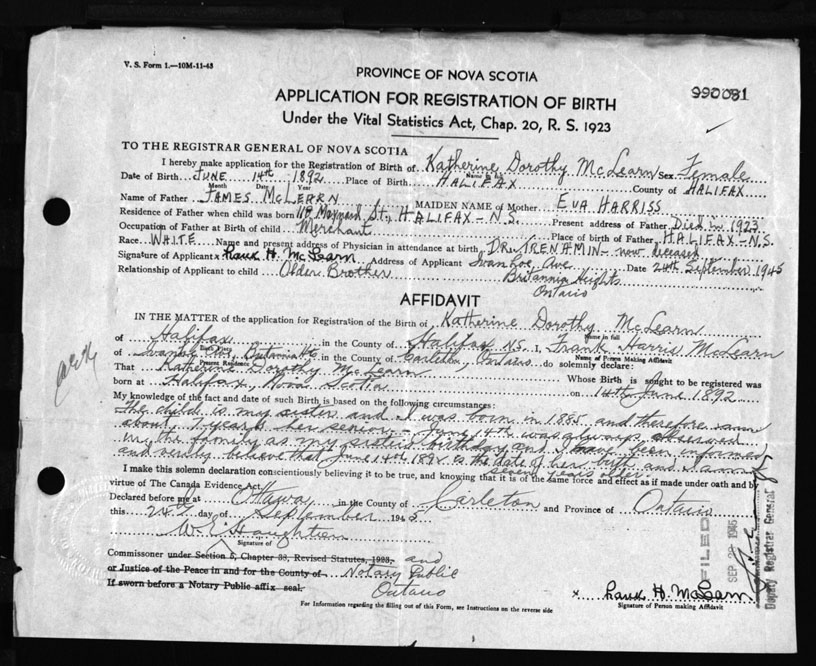 V. S. Form 1.—10M-11-43
PROVINCE OF NOVA SCOTIA
990081
APPLICATION FOR REGISTRATION OF BIRTH
Under the Vital Statistics Act, Chap. 20, R. S. 1923
TO THE REGISTRAR GENERAL OF NOVA SCOTIA
I hereby make application for the Registration of Birth of Katherine Dorothy McLearn Sex Female
Name in full
Date of Birth JUNE 14th 1892 Place of Birth HALIFAX County of HALIFAX
Month Date Year
Name of Father JAMES McLEARN MAIDEN NAME of Mother EVA HARRISS
Residence of Father when child was born Maynard St., HALIFAX-N.S. Present address of Father Died in 1923
Occupation of Father at Birth of child Merchant Place of birth of Father HALIFAX-N.S.
Race WHITE Name and present address of Physician in attendance at birth DR. TRENAMIN - now deceased
Signature of Applicant x Frank H. McLearn Address of Applicant Ivanhoe Ave. Date 24th September 1945
Relationship of Applicant to child Older Brother Britannia Heights
Ontario
AFFIDAVIT
IN THE MATTER of the application for Registration of the Birth of Katherine Dorothy McLearn
Name in full
of Halifax in the County of Halifax N.S. I, Frank Harris McLearn
Birth Place Name of Person Making Affidavit
of Ivanhoe Ave, Britannia Hts in the County of Carleton, Ontario do solemnly declare:
Present Residence
That Katherine Dorothy McLearn Whose Birth is sought to be registered was
born at Halifax, Nova Scotia on 14th June 1892
My knowledge of the fact and date of such Birth is based on the following circumstances:
The child is my sister and I was born in 1885 and therefore am
about 7 years her senior - June 14th was always observed
in the family as my sister's birthday and I have been informed
and verily believe that June 14th 1892 is the date of her birth and I am
seven years her
I make this solemn declaration conscientiously believing it to be true, and knowing that it is of the same force and effect as if made under oath and by
virtue of The Canada Evidence Act.
Declared before me at Ottawa in the County of Carleton and Province of Ontario
this 24 day of September 1945
Signature of
Commissioner under Section 5, Chapter 33, Revised Statutes, 1923. and
or Justice of the Peace in and for the County of Notary Public
If sworn before a Notary Public affix seal. Ontario
x Frank H. McLearn
Signature of Person making Affidavit
For Information regarding the filling out of this Form, see Instructions on the reverse side
FILED
SEP 1945
Deputy Registrar General